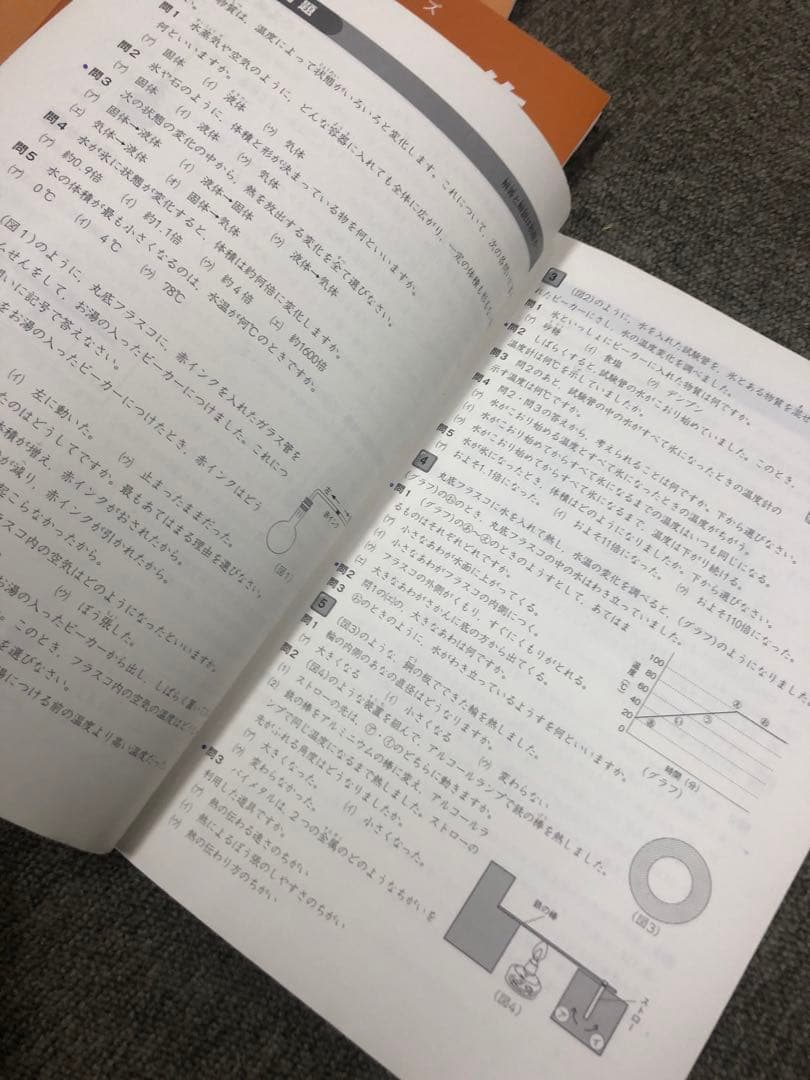 題
物質は、温度によって状態がいろいろと変化します。これについて、次の各問いに
問1 水蒸気や空気のように、どんな容器に入れても全体に広がり、一定の体積も形も
何といいますか。
(ア) 固体 (イ) 液体 (ウ) 気体
問2 氷や石のように、体積と形が決まっている物を何といいますか。
(ア) 固体 (イ) 液体 (ウ) 気体
問3 次の状態の変化の中から、熱を放出する変化を全て選びなさい。
(ア) 固体→液体 (イ) 液体→固体 (ウ) 液体→気体
(エ) 気体→液体 (オ) 固体→気体
問4 水が氷に状態が変化すると、体積は約何倍に変化しますか。
(ア) 約0.9倍 (イ) 約1.1倍 (ウ) 約4倍 (エ) 約1600倍
問5 水の体積が最も小さくなるのは、水温が何℃のときですか。
(ア) 0℃ (イ) 4℃ (ウ) 78℃
(図1)のように、丸底フラスコに、赤インクを入れたガラス管を
せんをして、お湯の入ったビーカーにつけました。これにつ
いに記号で答えなさい。
をお湯の入ったビーカーにつけたとき、赤インクはどう
(イ) 左に動いた。 (ウ) 止まったままだった。
たのはどうしてですか。最もあてはまる理由を選びなさい。
体積が増え、赤インクがおされたから。
が減り、赤インクが引かれたから。
起こらなかったから。
フラスコ内の空気はどのようになったといいますか。
(ウ) ぼう張した。
お湯の入ったビーカーから出し、しばらく置
このとき、フラスコ内の空気の温度は
を選びなさい。
湯につける前の温度より高い温度だった
左
赤インク
(図1)
3 (図2)のように、水を入れた試験管を、氷とある物質を混ぜ
れたビーカーにさし、水の温度変化を調べました。
問1 氷といっしょにビーカーに入れた物質は何ですか。
(ア) 砂糖 (イ) 食塩 (ウ) デンプン
問2 しばらくすると、試験管の水がこおり始めていました。このとき、
温度計は何℃を示していましたか。
問3 問2のあと、試験管の中の水がすべて氷になったときの温度計の
示す温度は何℃ですか。
問4 問2・問3の答えから、考えられることは何ですか。下から選びなさい。
(ア) 水がこおり始める温度とすべて氷になったときの温度がちがう。
(イ) 水がこおり始めてからすべて氷になるまでの温度はいつも同じになる。
(ウ) 水がこおり始めてからすべて氷になるまで、温度は下がり続ける。
問5 水が氷になったとき、体積はどのようになりましたか。下から選びなさい。
(ア) およそ1.1倍になった。 (イ) およそ11倍になった。 (ウ) およそ110倍になった。
4 丸底フラスコに水を入れて熱し、水温の変化を調べると、(グラフ)のようになりました
(グラフ)の㋓のとき、丸底フラスコの中の水はわき立っていました。
問1 (グラフ)の㋐～㋓のときのようすとして、あてはま
るものはそれぞれどれですか。
(ア) 小さなあわが水面に上がってくる。
(イ) 小さなあわがフラスコの内側につく。
(ウ) フラスコの外側がくもり、すぐにくもりがとれる。
(エ) 大きなあわがさかんに底の方から出てくる。
問2 問1の(エ)の、大きなあわは何ですか。
問3 ㋓のときのように、水がわき立っているようすを何といいますか。
温度(℃)
100
80
60
40
20
0
時間(分)
(グラフ)
5 (図3)のような、銅の板でできた輪を熱しました。
問1 輪の内側のあなの直径はどうなりますか。
(ア) 大きくなる (イ) 小さくなる (ウ) 変わらない
問2 (図4)のような装置を組んで、アルコールランプで鉄の棒を熱しました。
(1) ストローの先は、㋐・㋑のどちらに動きますか。
(2) 鉄の棒をアルミニウムの棒に変え、アルコールラ
ンプで同じ温度になるまで熱しました。ストローの
先がふれる角度はどうなりましたか。
(ア) 大きくなった。 (イ) 小さくなった。
(ウ) 変わらなかった。
問3 バイメタルは、2つの金属のどのようなちがいを
利用した道具ですか。
(ア) 熱の伝わる速さのちがい
(イ) 熱によるぼう張のしやすさのちがい
(ウ) 熱の伝わり方のちがい
(図3)
鉄の棒
ストロー
ア
イ
(図4)